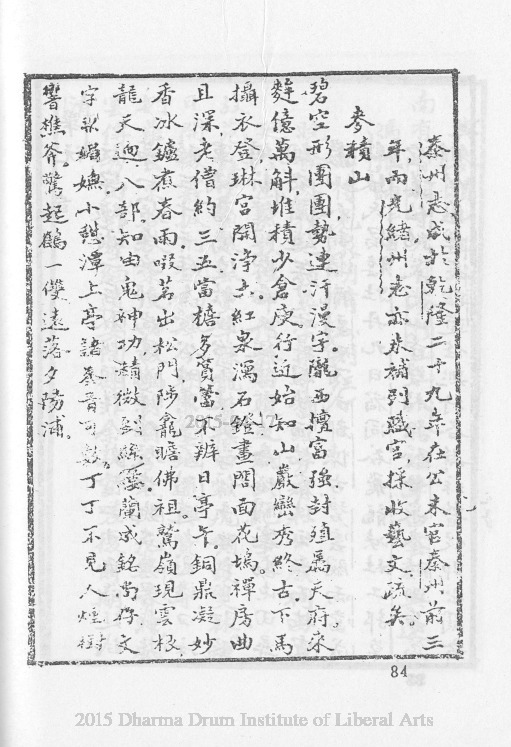 秦州志成於乾隆二十九年在公未官秦州前三
年而光緒州志亦未補列職官採收藝文疏矣。
麥積山
碧空形團團，勢連汗漫宇。隴西壇富強，封殖爲天府。來
麰億萬斛，堆積少倉庾。行近始知山，巖巒秀終古。下馬
攝衣登，琳宮開淨土。紅泉瀉石鐙，畫閣面花塢。禪房曲
且深，老僧約三五。當檐多篔簹，不辨日亭午。銅鼎凝妙
香，冰鑪煮春雨。啜茗出松門，陟龕瞻佛祖。鷲嶺現雲根，
龍天迴八部。知由鬼神功，積微到 蘭成銘尚存，文
字 小憩潭上亭，諸 可數。丁丁不見人，煙樹
響樵斧。驚起鶴一雙，遠落夕陽浦。
84
2015 Dharma Drum Institute of Liberal Arts